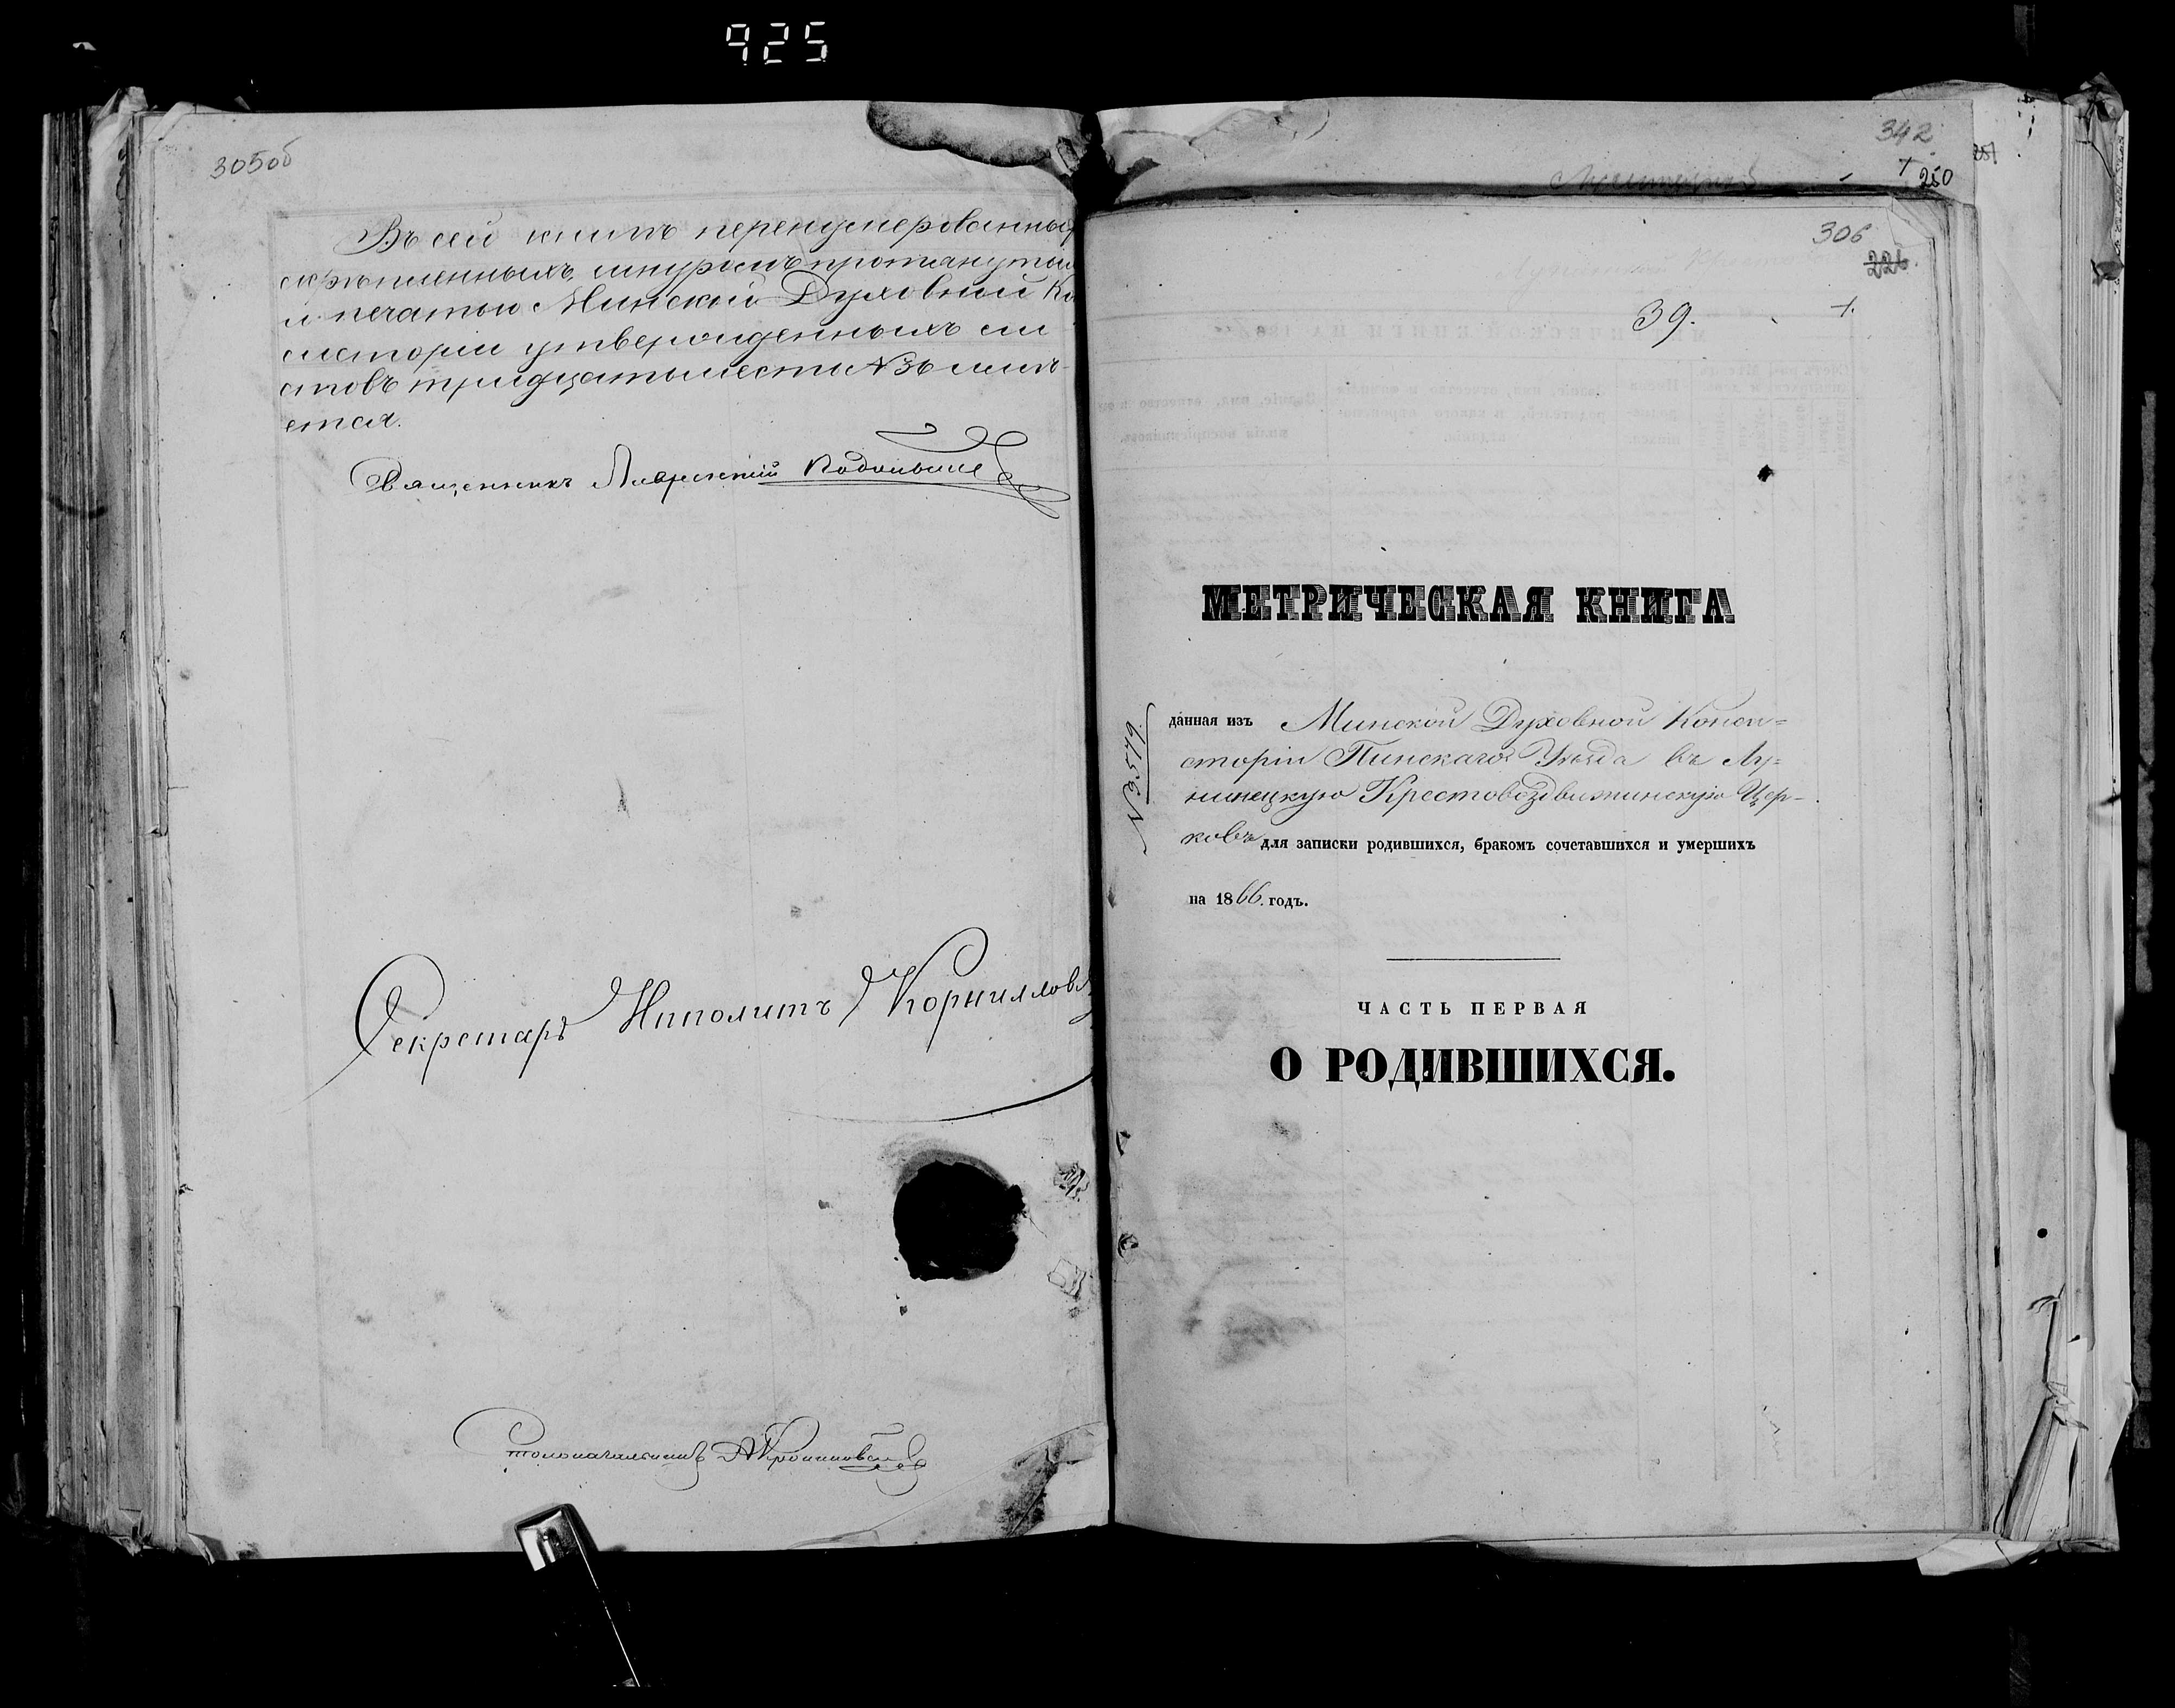 925
305об
Въ сей книгѣ перенумерованны
скрѣпленныхъ, шнуромъ протянуты
и печатью Минской Духовной Ко
систоріи утвержденныхъ ли
стовъ тридцать шесть № 36 имѣ-
ется.
Священникъ
Секретарь Ипполитъ Корнилловъ
Столоначальникъ
342
250
306
226.
39.
МЕТРИЧЕСКАЯ КНИГА
№ 3579.
данная изъ Минской Духовной Конси=
сторіи Пинскаго Уѣзда въ Лу=
нинецкую Крестовоздвижинскую Цер-
ковь для записки родившихся, бракомъ сочетавшихся и умершихъ
на 1866. годъ.
ЧАСТЬ ПЕРВАЯ
О РОДИВШИХСЯ.